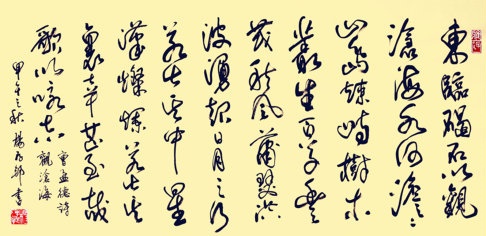 東臨碣石以觀
滄海水何澹〻
山島竦峙樹木
叢生百草豐
茂秋風蕭瑟洪
波湧起日月之行
若出其中星
漢燦爛若出其
裏幸甚至哉
歌以詠志
曹孟德詩
觀滄海
甲午之秋 楊書